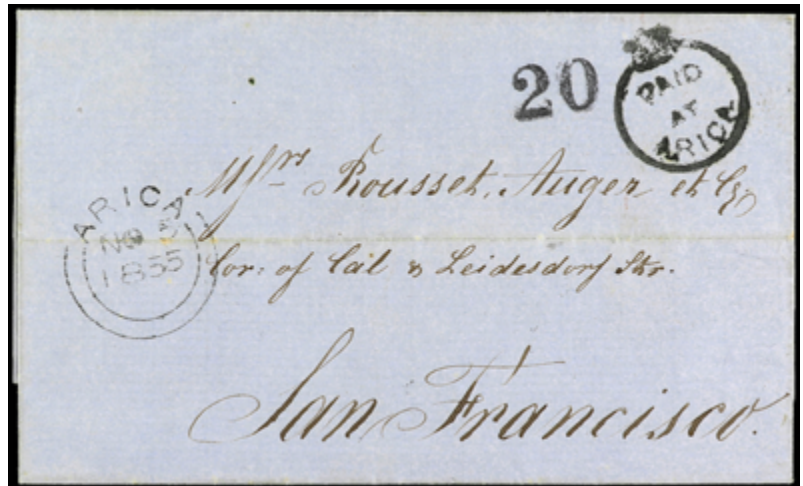 20
PAID
AT
ARICA
ARICA
NO 5
1855
Msrs Rousset, Auger et Co
Cor: of Cal & Leidesdorf Strs.
San Francisco.